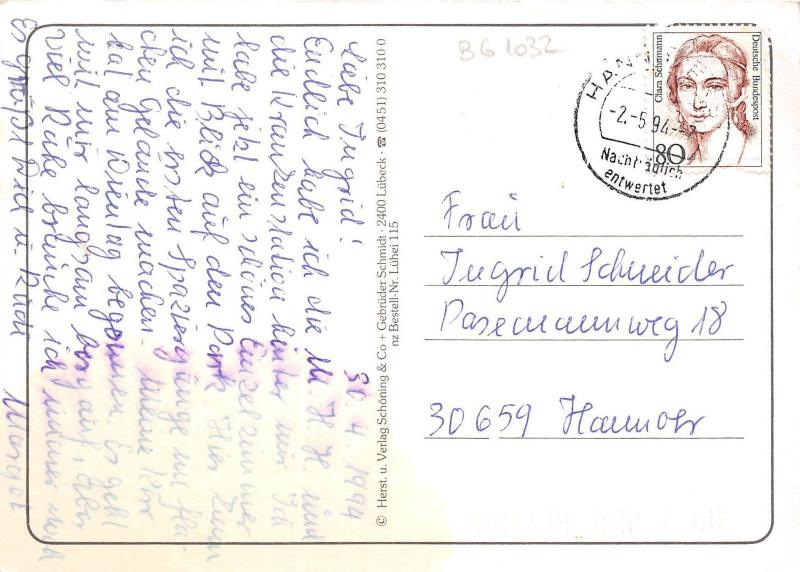 30.4.1994
Liebe Ingrid!
Endlich habe ich die M.H.H. und
die Krankenstation hinter mir. Ich
habe jetzt ein schönes Einzelzimmer
mit Blick auf den Park. Hier kann
ich die ersten Spaziergänge im fla-
chen Gelände machen. Meine Kur
hat am Dienstag begonnen. Es geht
mit mir langsam berg auf, aber
viel Ruhe brauche ich immer noch
Es grüßt Dich u. Rudi Margot
© Herst. u. Verlag Schöning & Co + Gebrüder Schmidt · 2400 Lübeck · ☎ (0451) 310 310 0
nz Bestell-Nr. Lühei 115
BG 1032
HAN
-2.-5.94-
Nachträglich
entwertet
Clara Schumann
Deutsche Bundespost
80
Frau
Ingrid Schneider
Pasemannweg 18
30659 Hannover